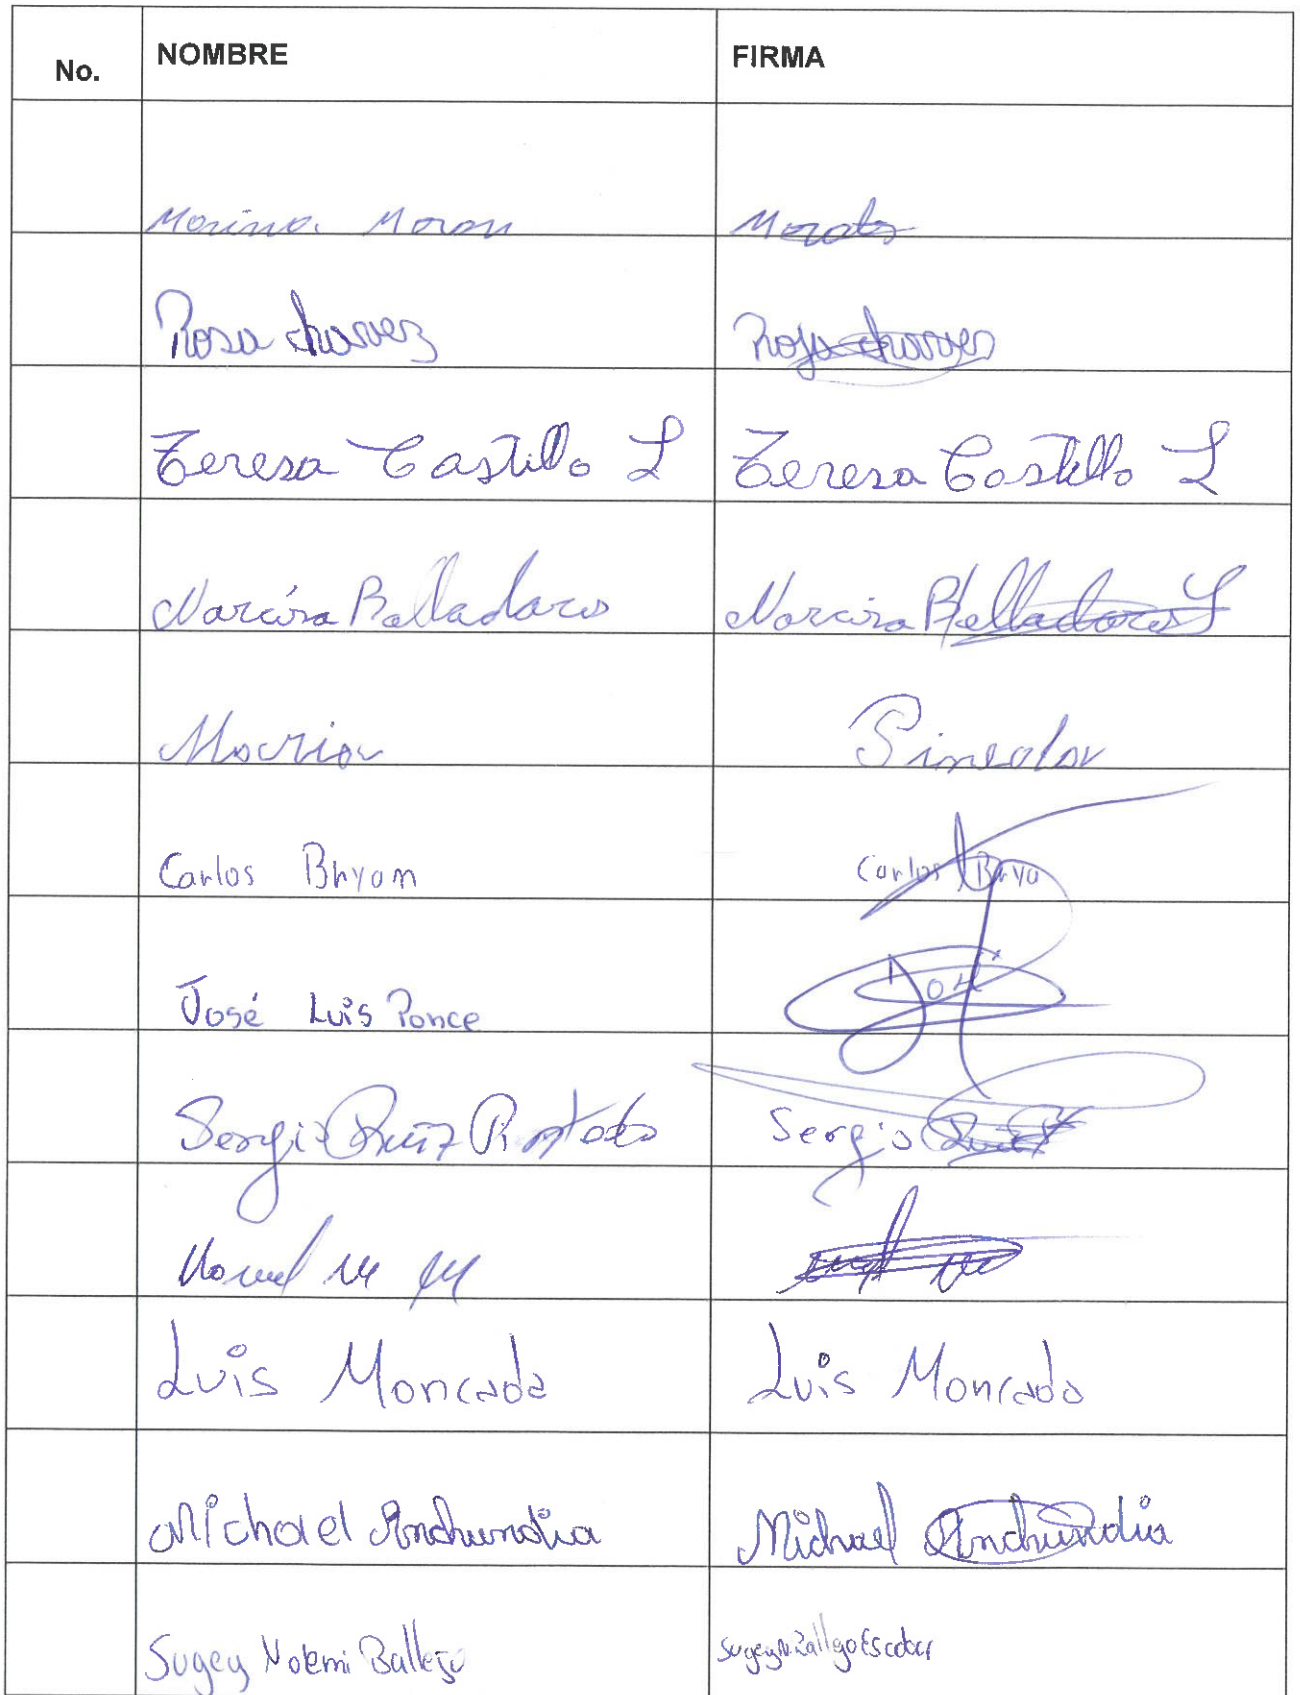 No. NOMBRE FIRMA
Marina Moran
Rosa chavez Rosa chavez
Teresa Castillo L Teresa Castillo L
Narcisa Balladares Narcisa
Maria Pineda
Carlos Bryan Carlos Brya
José Luis Ponce José
Sergio Ruiz Sergio Ruiz
Luis Moncada Luis Moncada
Michael Anchundia Michael Anchundia
Sugey Noemi Sugey